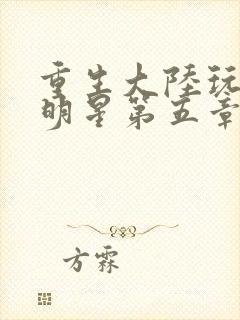 重生大陆玩
明星第五章
方霖